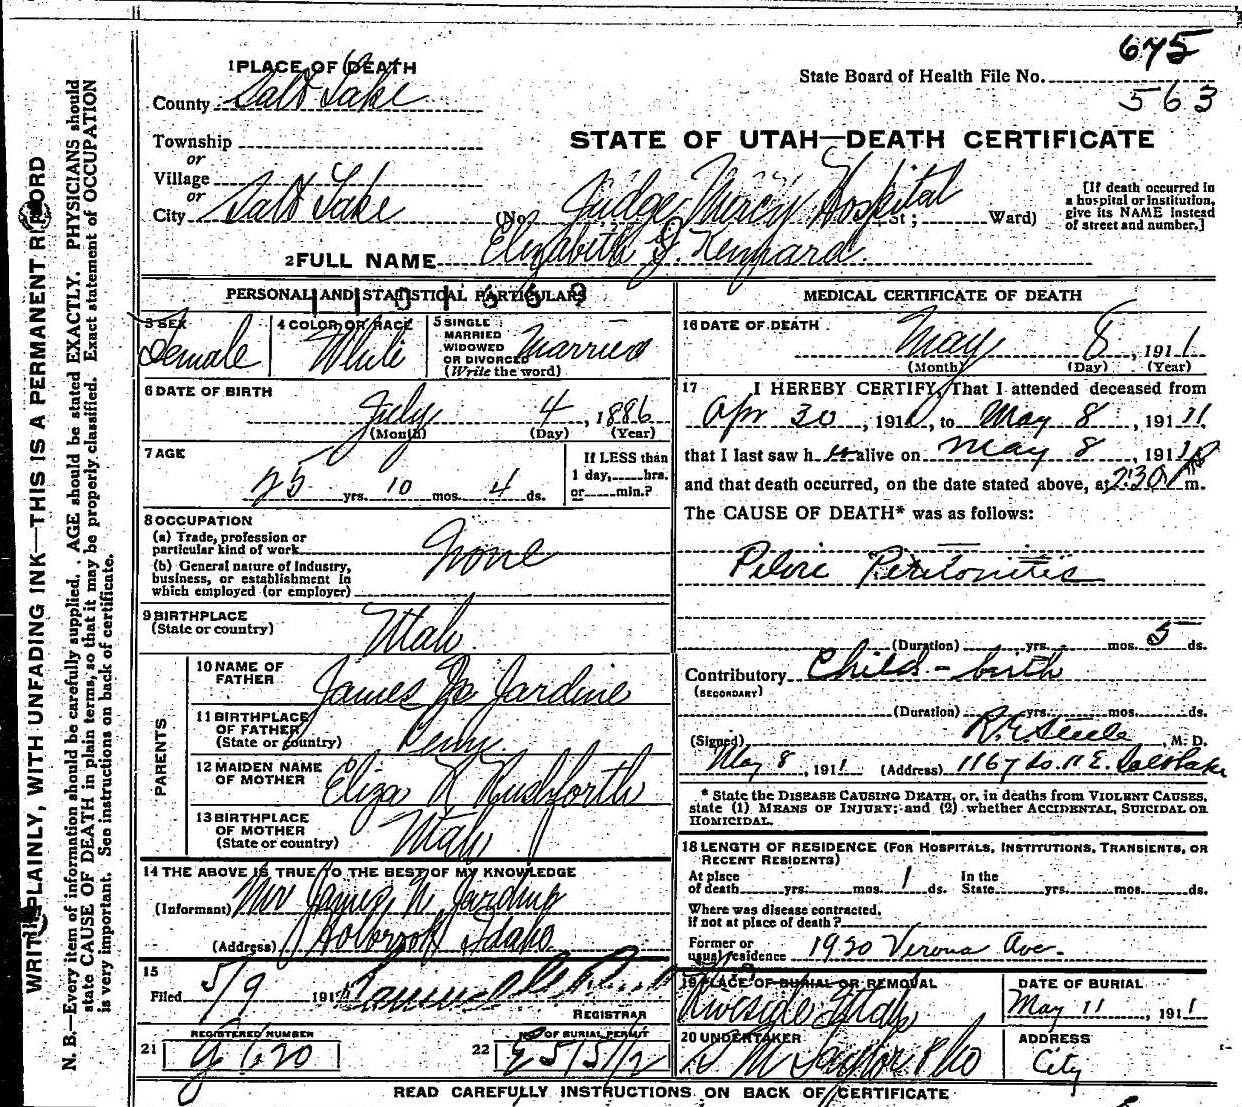 675
State Board of Health File No.
563
1 PLACE OF DEATH
County Salt Lake
STATE OF UTAH—DEATH CERTIFICATE
Township
or
Village
or
City Salt Lake (No. Judge Mercy Hospital St; Ward)
[If death occurred in a hospital or institution, give its NAME instead of street and number.]
2 FULL NAME Elizabeth J. Kennard
PERSONAL AND STATISTICAL PARTICULARS
1101669
3 SEX Female
4 COLOR OR RACE White
5 SINGLE MARRIED WIDOWED OR DIVORCED (Write the word) Married
6 DATE OF BIRTH
July 4, 1886
(Month) (Day) (Year)
7 AGE
25 yrs. 10 mos. 4 ds.
If LESS than 1 day, hrs. or min.?
8 OCCUPATION
(a) Trade, profession or particular kind of work None
(b) General nature of industry, business, or establishment in which employed (or employer)
9 BIRTHPLACE
(State or country) Utah
PARENTS
10 NAME OF FATHER James N. Jardine
11 BIRTHPLACE OF FATHER
(State or country)
12 MAIDEN NAME OF MOTHER Eliza R Rushforth
13 BIRTHPLACE OF MOTHER
(State or country) Utah
14 THE ABOVE IS TRUE TO THE BEST OF MY KNOWLEDGE
(Informant) Mr James N. Jardine
(Address) Holbrook Idaho
15
Filed 5/9 191
REGISTRAR
REGISTERED NUMBER
21 G 620
NO. OF BURIAL PERMIT
22 E 5/5/12
MEDICAL CERTIFICATE OF DEATH
16 DATE OF DEATH
May 8, 1911
(Month) (Day) (Year)
17 I HEREBY CERTIFY, That I attended deceased from
Apr 30, 1911, to May 8, 191 11
that I last saw h er alive on May 8, 191 1
and that death occurred, on the date stated above, at 2:30 P m.
The CAUSE OF DEATH* was as follows:
Pelvic Peritonitis
(Duration) yrs. mos. 5 ds.
Contributory Child-birth
(SECONDARY)
(Duration) yrs. mos. ds.
(Signed) R.E. Steele, M. D.
May 8, 1911 (Address) 1167 So. 11 E. Salt Lake
* State the DISEASE CAUSING DEATH, or, in deaths from VIOLENT CAUSES, state (1) MEANS OF INJURY; and (2) whether ACCIDENTAL, SUICIDAL OR HOMICIDAL.
18 LENGTH OF RESIDENCE (FOR HOSPITALS, INSTITUTIONS, TRANSIENTS, OR RECENT RESIDENTS)
At place of death yrs. mos. 1 ds. In the State yrs. mos. ds.
Where was disease contracted, if not at place of death?
Former or usual residence 1920 Verona Ave.
19 PLACE OF BURIAL OR REMOVAL
Riverside Utah
DATE OF BURIAL
May 11, 1911
20 UNDERTAKER
S M Taylor & Co
ADDRESS
City
READ CAREFULLY INSTRUCTIONS ON BACK OF CERTIFICATE
WRITE PLAINLY, WITH UNFADING INK—THIS IS A PERMANENT RECORD
N. B.—Every item of information should be carefully supplied. AGE should be stated EXACTLY. PHYSICIANS should
state CAUSE OF DEATH in plain terms, so that it may be properly classified. Exact statement of OCCUPATION
is very important. See instructions on back of certificate.